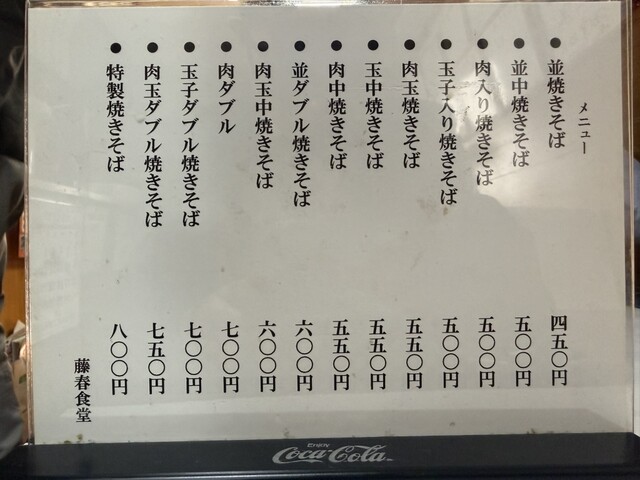 メニュー
●並焼きそば 四五〇円
●並中焼きそば 五〇〇円
●肉入り焼きそば 五〇〇円
●玉子入り焼きそば 五〇〇円
●肉玉焼きそば 五五〇円
●玉中焼きそば 五五〇円
●肉中焼きそば 五五〇円
●並ダブル焼きそば 六〇〇円
●肉玉中焼きそば 六〇〇円
●肉ダブル 七〇〇円
●玉子ダブル焼きそば 七〇〇円
●肉玉ダブル焼きそば 七五〇円
●特製焼きそば 八〇〇円
藤春食堂
ENJOY
Coca-Cola